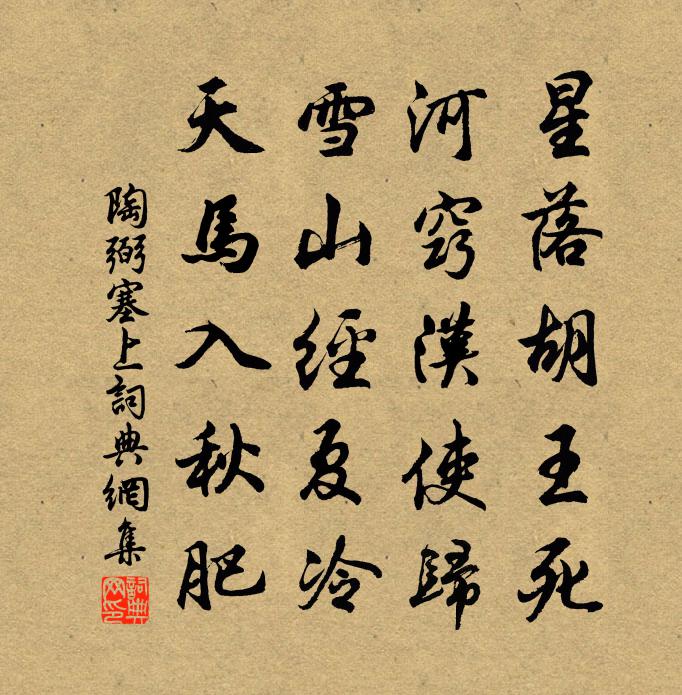 星落胡王死
河窮漢使歸
雪山經夏冷
天馬入秋肥
陶弼塞上詞典網集
詞典網印